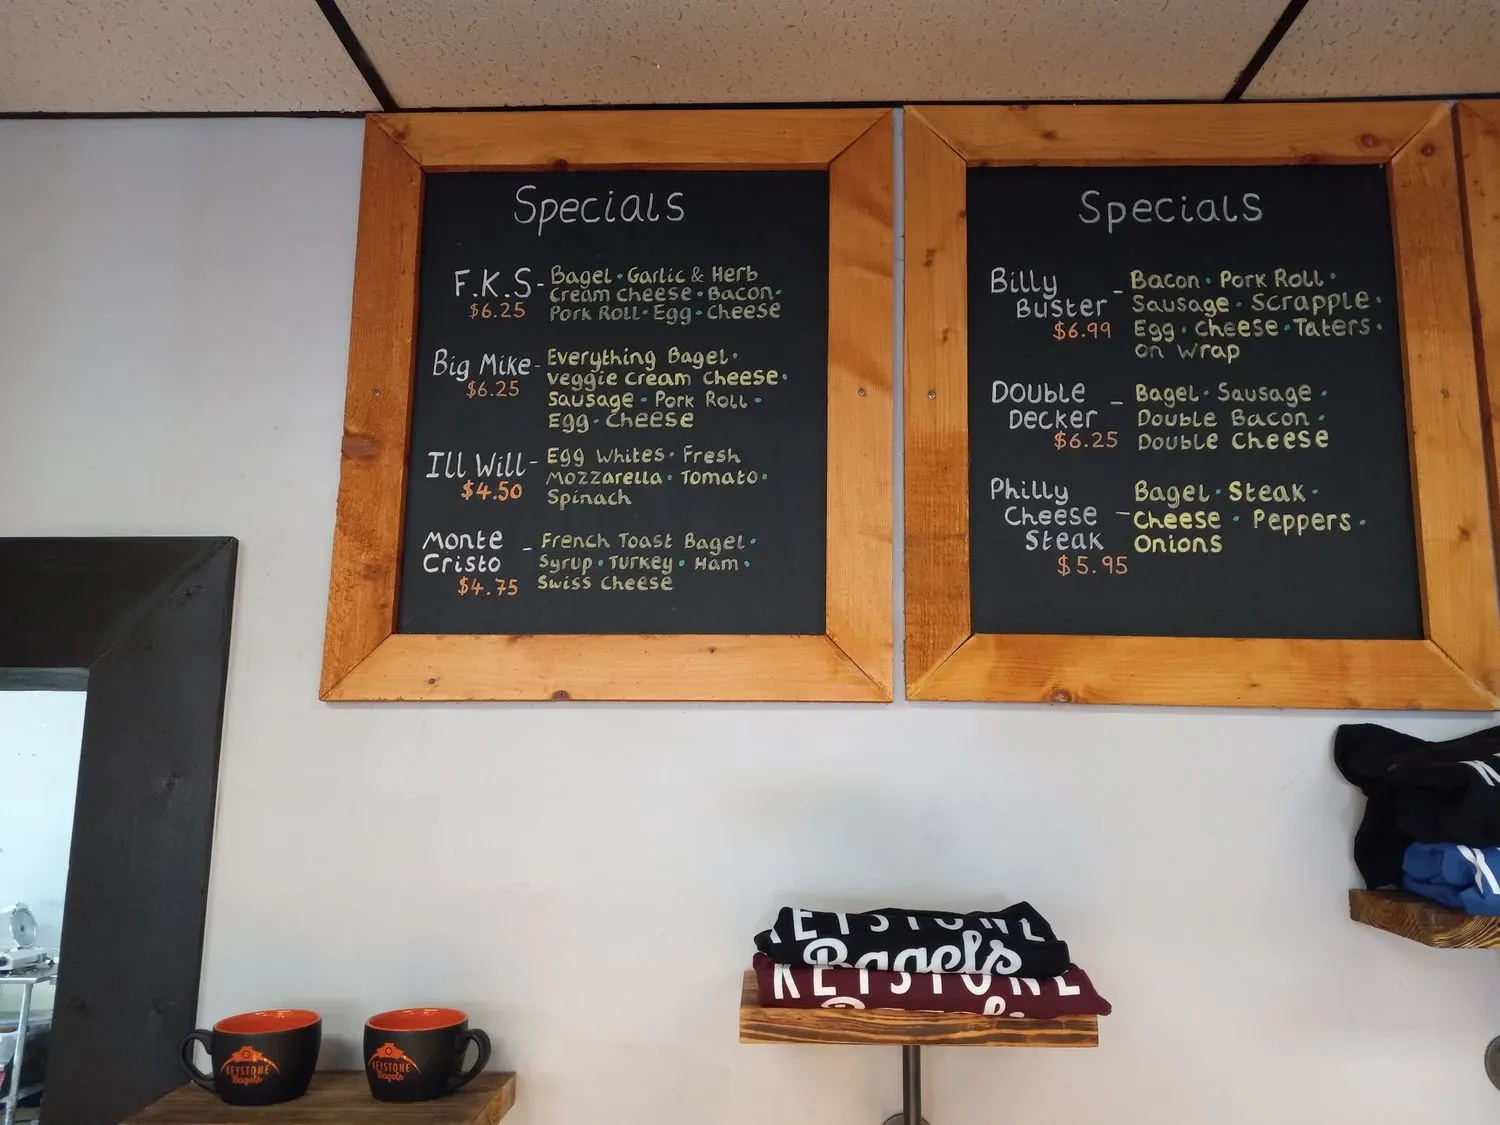 Specials
F.K.S - Bagel • Garlic & Herb
Cream Cheese • Bacon •
$6.25 Pork Roll • Egg • Cheese
Big Mike - Everything Bagel •
$6.25 Veggie Cream Cheese •
Sausage • Pork Roll •
Egg • Cheese
Ill Will - Egg Whites • Fresh
$4.50 Mozzarella • Tomato •
Spinach
Monte - French Toast Bagel •
Cristo Syrup • Turkey • Ham •
$4.75 Swiss Cheese
Specials
Billy - Bacon • Pork Roll •
Buster Sausage • Scrapple •
$6.99 Egg • Cheese • Taters •
on Wrap
Double - Bagel • Sausage •
Decker Double Bacon •
$6.25 Double Cheese
Philly Bagel • Steak •
Cheese - Cheese • Peppers •
Steak Onions
$5.95
KEYSTONE
Bagels
KEYSTONE
KEYSTONE
Bagels
KEYSTONE
Bagels